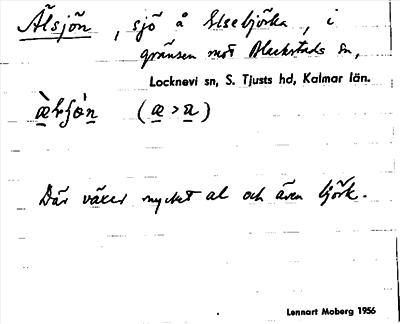 Älsjön, sjö å Elsebjörka, i
gränsen mot Blackstads sn,
Locknevi sn, S. Tjusts hd, Kalmar län.
(æ > a)
Där växer mycket al och även björk.
Lennart Moberg 1956